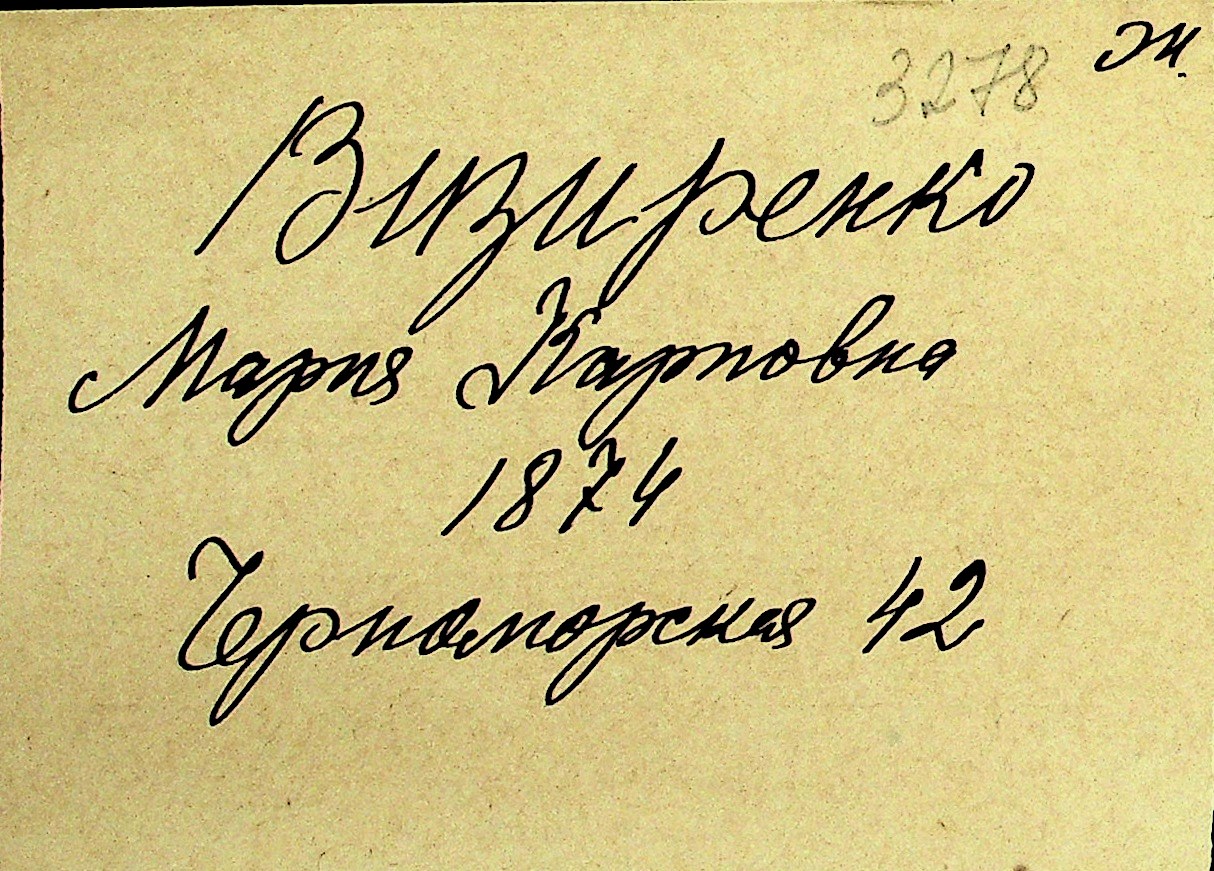 3278 Ж.
Визиренко
Мария Карповна
1874
Черноморская 42